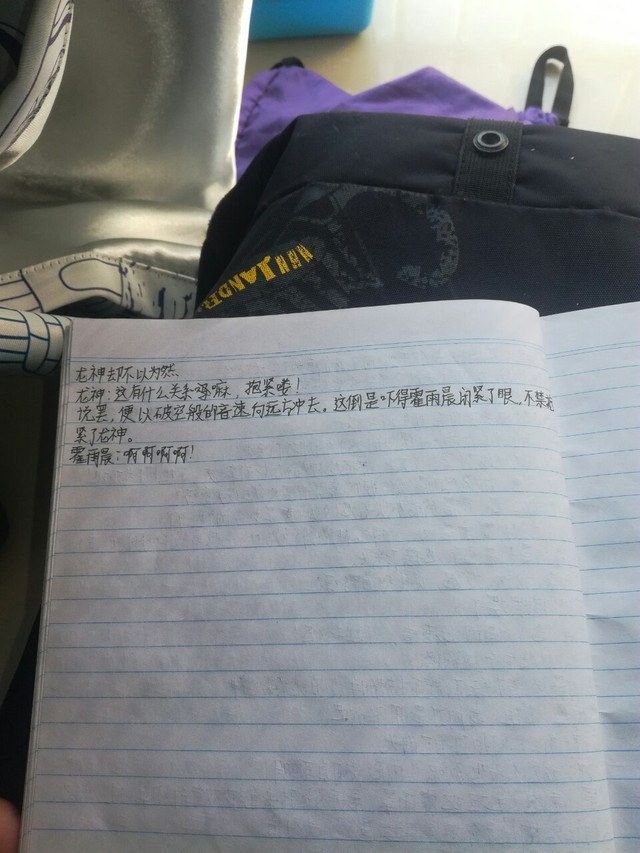 JANDER
龙神却不以为然.
龙神:这有什么关系嘛,抱紧喽!
说罢,便以破空般的音速向远方冲去。这倒是吓得霍雨晨闭紧了眼,不禁抱
紧了龙神。
霍雨晨:啊啊啊啊!